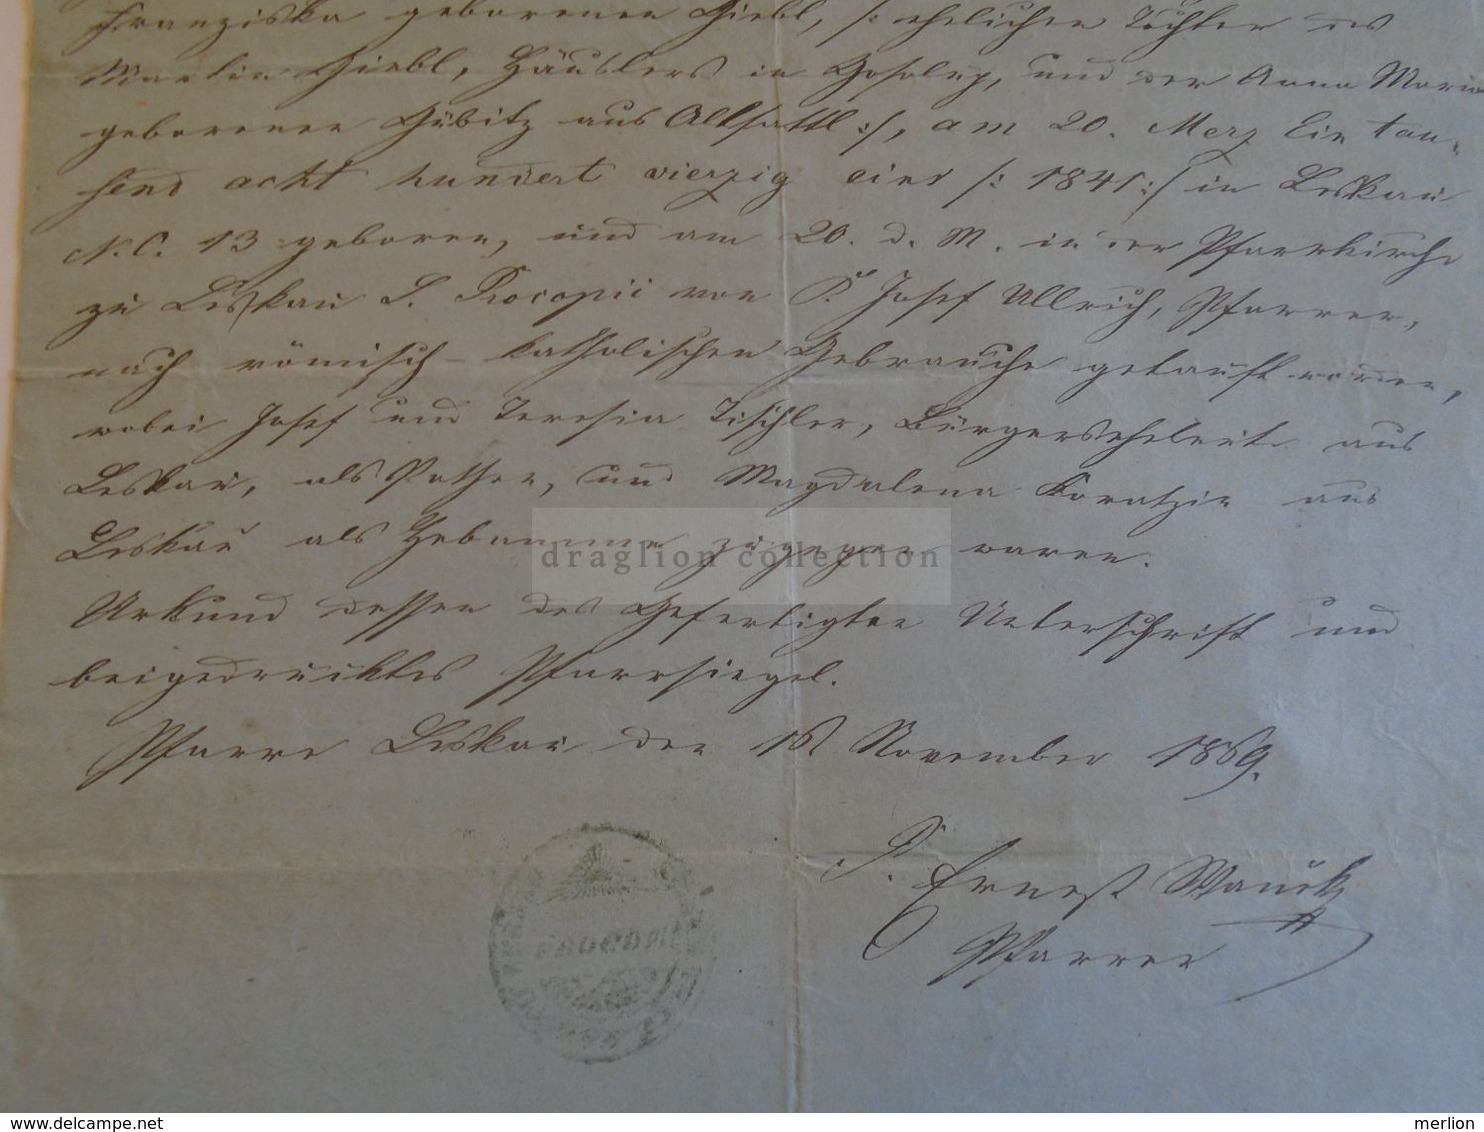 Franziska geborenen Giebl, /: ehelichen Tochter des
Martin Giebl, Häuslers in Gosolup, und der Anna Maria
geborenen Gübitz aus Altsattl :/, am 20. Merz Ein tau-
send acht hundert vierzig eins /: 1841 :/ in Leskau
N. C. 13 geboren, und am 20. d. M. in der Pfarrkirche
zu Leskau S. Procopii von P. Josef Ullrich, Pfarrer,
nach römisch-katholischen Gebrauche getauft worden,
wobei Josef und Teresia Tischler, Bürgerseheleute aus
Leskau, als Pathen, und Magdalena Koratzin aus
Leskau als Hebamme zugegen waren.
draglion collection
Urkund dessen des Gefertigten Unterschrift und
beigedrucktes Pfarrsiegel.
Pfarre Leskau den November 1869.
P. Ernest
Pfarrer
PROCOPII
https://www.delcampe.net
merlion